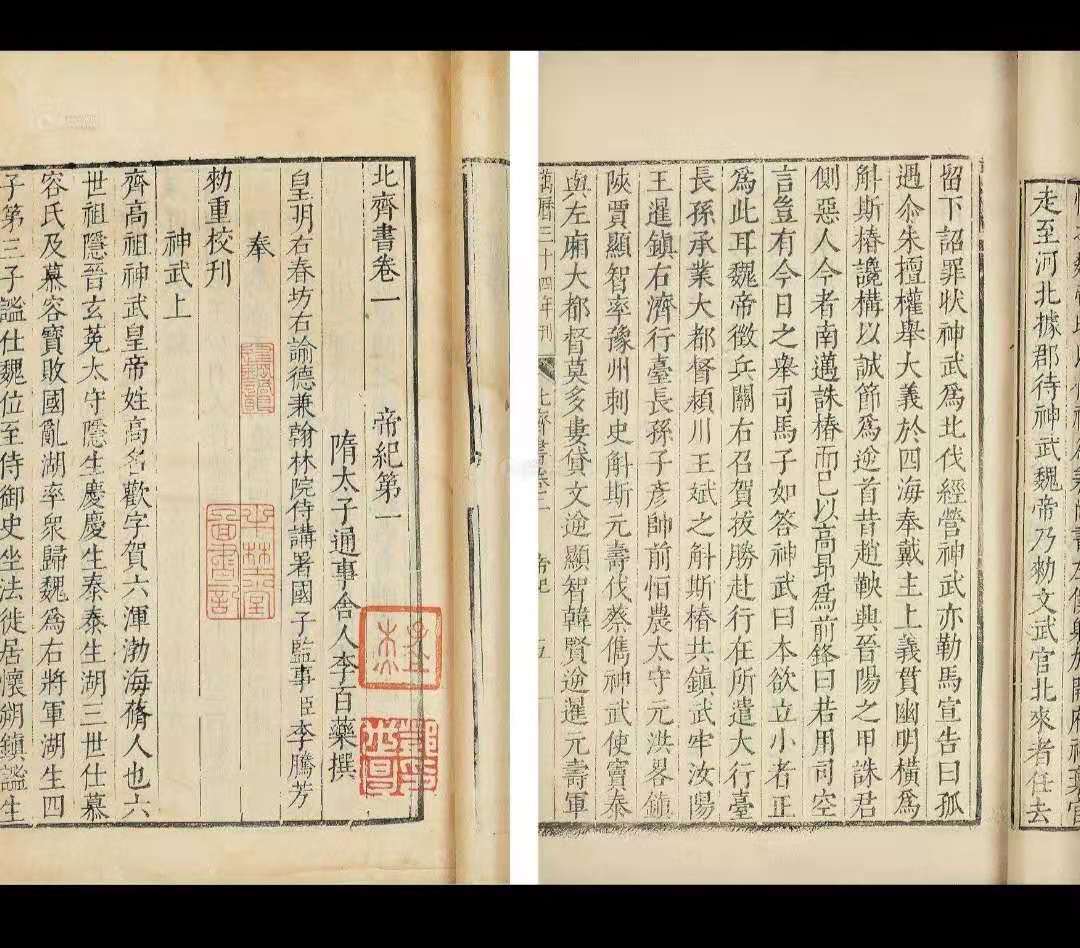 北齊書卷一　帝紀第一
隋太子通事舍人李百藥撰
皇明右春坊右諭德兼翰林院侍講署國子監事臣李騰芳
奉
勑重校刊
神武上
齊高祖神武皇帝姓高名歡字賀六渾渤海蓨人也六
世祖隱晉玄菟太守隱生慶慶生泰泰生湖三世仕慕
容氏及慕容寶敗國亂湖率衆歸魏爲右將軍湖生四
子第三子謐仕魏位至侍御史坐法徙居懷朔鎮謐生
走至河北據郡待神武魏帝乃勑文武官北來者任去
留下詔罪狀神武爲北伐經營神武亦勒馬宣告曰孤
遇尒朱擅權舉大義於四海奉戴主上義貫幽明橫爲
斛斯椿讒構以誠節爲逆首昔趙鞅興晉陽之甲誅君
側惡人今者南邁誅椿而已以高昂爲前鋒曰若用司空
言豈有今日之舉司馬子如答神武曰本欲立小者正
爲此耳魏帝徵兵關右召賀拔勝赴行在所遣大行臺
長孫承業大都督頴川王斌之斛斯椿共鎮武牢汝陽
王暹鎮右濟行臺長孫子彥帥前恒農太守元洪畧鎮
陝賈顯智率豫州刺史斛斯元壽伐蔡儁神武使竇泰
與左廂大都督莫多婁貸文逆顯智韓賢逆暹元壽軍
萬曆三十四年刊　北齊書卷二　帝紀　五